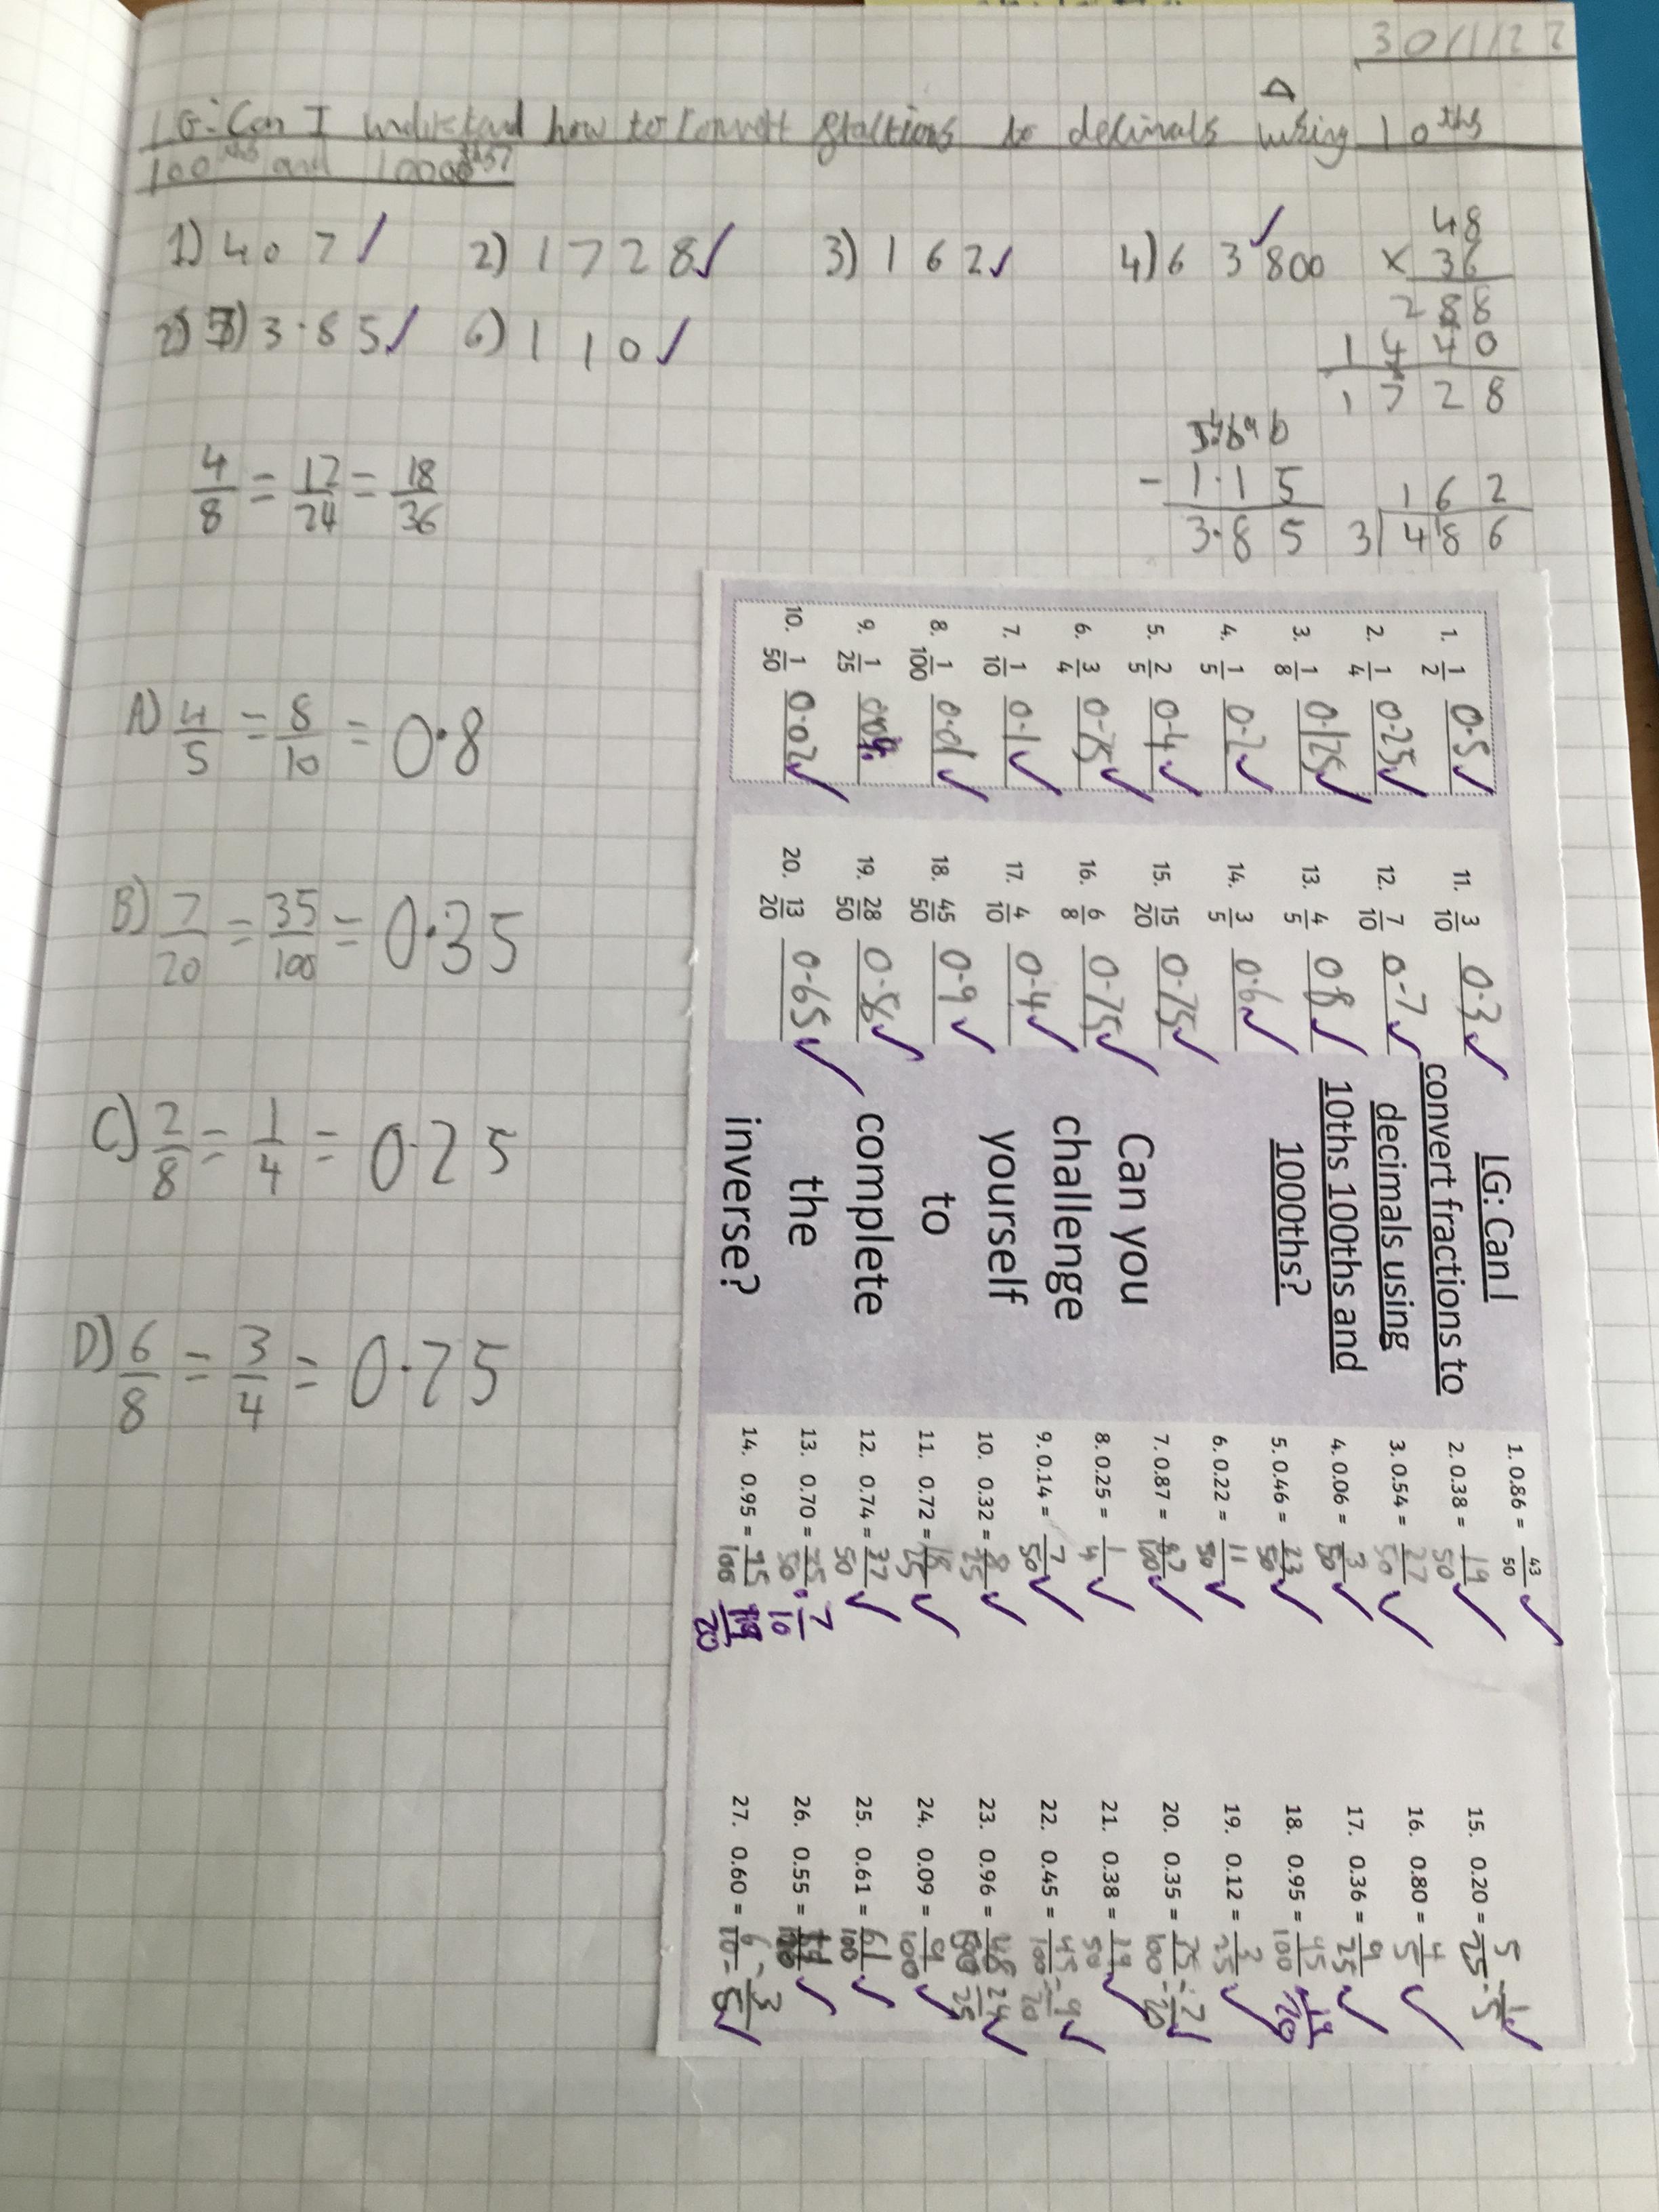 30/1/22
LG: Can I understand how to convert fractions to decimals using 10ths
100ths and 1000ths?
1) 407 ✓ 2) 1728 ✓ 3) 162 ✓ 4) 63800 ✓
5) 3.85 ✓ 6) 110 ✓
48
× 36
288
1440
1728
- 1.15
3.85
162
3 486
4/8 = 12/24 = 18/36
A) 4/5 = 8/10 = 0.8
B) 7/20 = 35/100 = 0.35
C) 2/8 = 1/4 = 0.25
D) 6/8 = 3/4 = 0.75
1. 1/2 0.5 ✓
2. 1/4 0.25 ✓
3. 1/8 0.125 ✓
4. 1/5 0.2 ✓
5. 2/5 0.4 ✓
6. 3/4 0.75 ✓
7. 1/10 0.1 ✓
8. 1/100 0.01 ✓
9. 1/25 0.04
10. 1/50 0.02 ✓
11. 3/10 0.3 ✓
12. 7/10 0.7 ✓
13. 4/5 0.8 ✓
14. 3/5 0.6 ✓
15. 15/20 0.75 ✓
16. 6/8 0.75 ✓
17. 4/10 0.4 ✓
18. 45/50 0.9 ✓
19. 28/50 0.58 ✓
20. 13/20 0.65 ✓
LG: Can I
convert fractions to
decimals using
10ths 100ths and
1000ths?
Can you
challenge
yourself
to
complete
the
inverse?
1. 0.86 = 43/50 ✓
2. 0.38 = 19/50 ✓
3. 0.54 = 27/50 ✓
4. 0.06 = 3/50 ✓
5. 0.46 = 23/50 ✓
6. 0.22 = 11/50 ✓
7. 0.87 = 87/100 ✓
8. 0.25 = 1/4 ✓
9. 0.14 = 7/50 ✓
10. 0.32 = 8/25 ✓
11. 0.72 = 18/25 ✓
12. 0.74 = 37/50 ✓
13. 0.70 = 35/50 7/10
14. 0.95 = 95/100 19/20
15. 0.20 = 5/25 = 1/5 ✓
16. 0.80 = 4/5 ✓
17. 0.36 = 9/25 ✓
18. 0.95 = 95/100 19/20
19. 0.12 = 3/25 ✓
20. 0.35 = 35/100 = 7/20 ✓
21. 0.38 = 19/50 ✓
22. 0.45 = 45/100 = 9/20 ✓
23. 0.96 = 24/25 ✓
24. 0.09 = 9/100 ✓
25. 0.61 = 61/100 ✓
26. 0.55 = ✓
27. 0.60 = 6/10 = 3/5 ✓